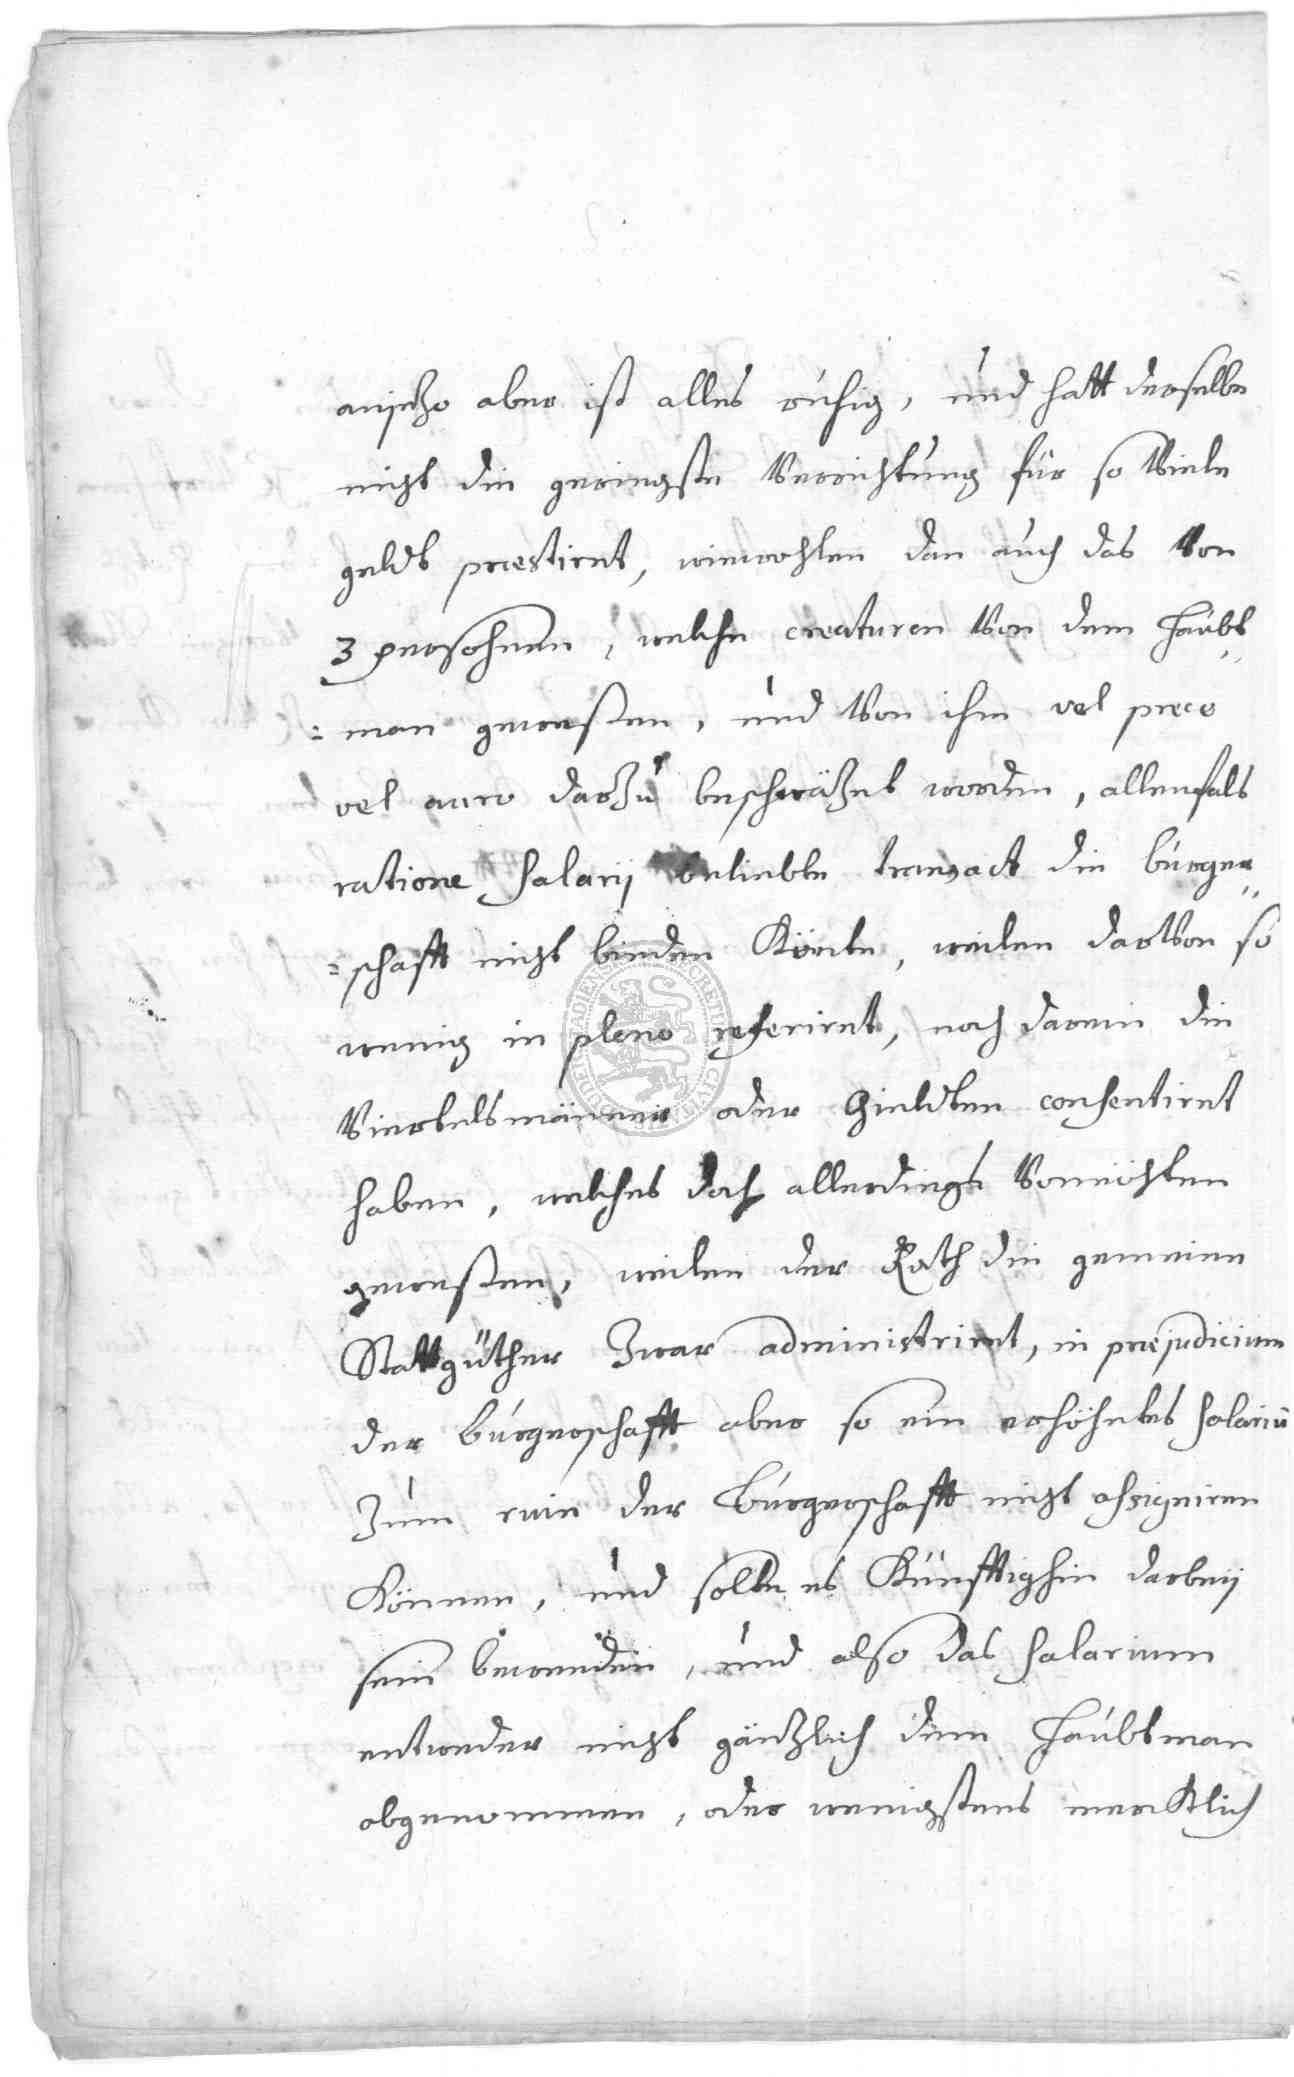 anjetzo aber ist alles ruhig, und hatt derselbe
nicht die geringste Verrichtung für so Viele
geldt praestirt, wiewohlen dan auch das Von
3 persohnen, welche creaturen Von dem Haubt
= man geweßen, und Von ihm vel prece
vel auro darzu beschwätzet worden, allenfals
ratione salarij beliebte transact die bürger
= schafft nicht binden Könte, weilen darVon so
wenig in pleno referirt, noch darein die
Viertelsmänner oder Gieldten consentirt
haben, welches doch allerdings Vonnöhten
geweßen, weilen der Rath die gemeine
Stattgüther Zwar administrirt, in praejudicium
der bürgerschafft aber so ein erhöhetes salariu
Zum ruin der Bürgerschafft nicht assigniren
Können, und solte es Künfftighin darbey
sein bewenden, und also das salarium
entweder nicht gäntzlich dem Haubtman
abgenommen, oder wenigstens mercklich